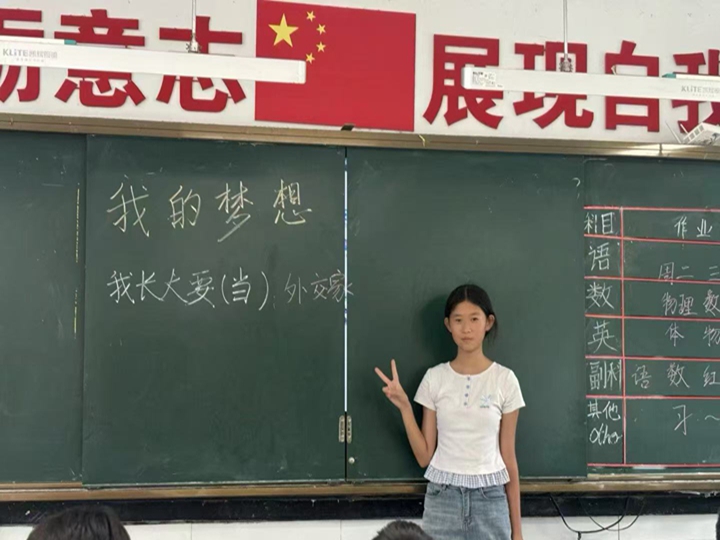 意志
展现自我
KLiTE
KLiTE
我的梦想
我长大要(当) 外交家
科目 作业
语 周二 三
数 物理 数
英 体 物
副科 语 数 红
其他 习~